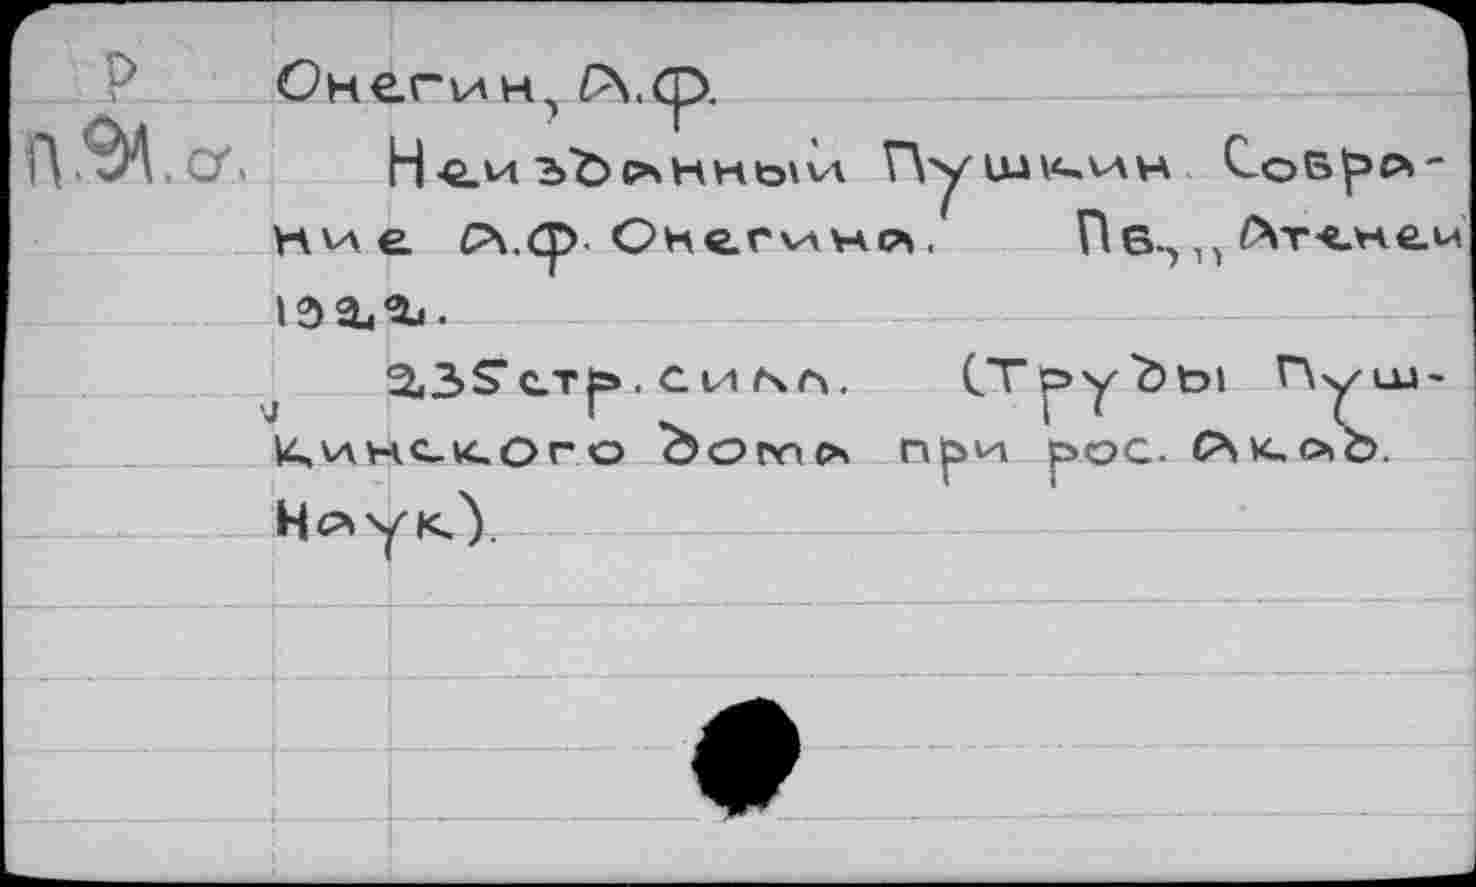 Р Онегин, А.Ф.
П.91.а. Неизданный Пушкин Собра-
ние А.Ф. Онегина. Пб., „Атенеи
1922.
235 стр. силл. (Труды Пуш-
кинского дома при рос. Акад.
Наук).